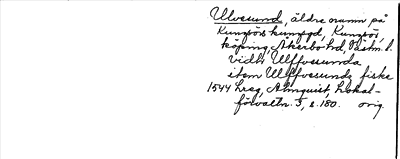 Ulvesund, äldre namn på
Kungsörs kungsgd, Kungsörs
köping, Åkerbo hd, Västm. l.
vidh Ulffvesunda
item Ulffvesunds fiske
1544 hreg, Almquist, Lokal-
förvaltn. 3, s. 180. orig.